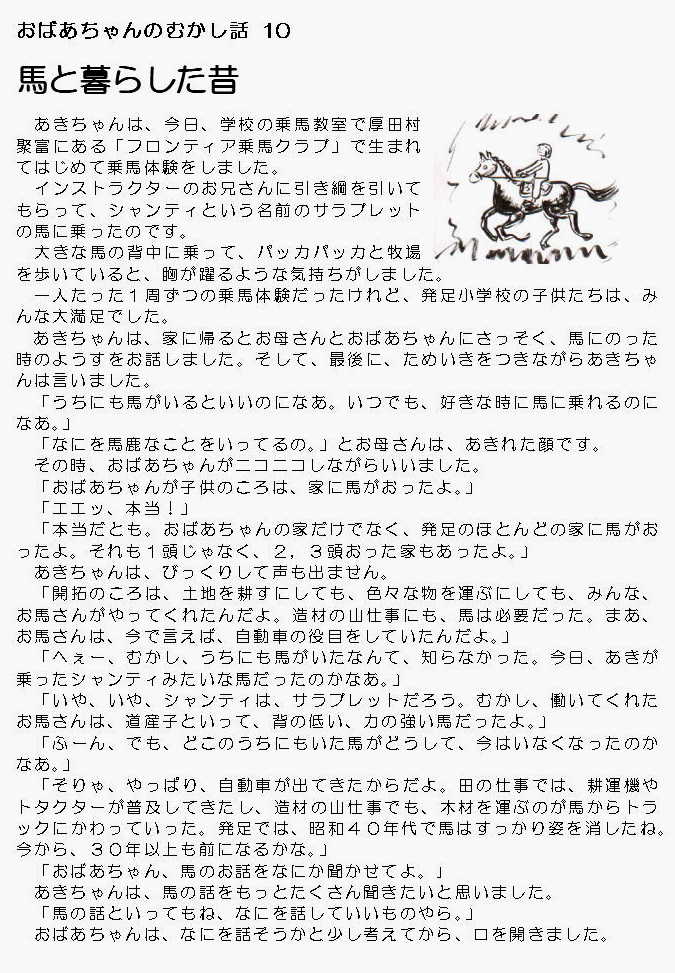 おばあちゃんのむかし話 10
馬と暮らした昔
　あきちゃんは、今日、学校の乗馬教室で厚田村
聚富にある「フロンティア乗馬クラブ」で生まれ
てはじめて乗馬体験をしました。
　インストラクターのお兄さんに引き綱を引いて
もらって、シャンティという名前のサラブレット
の馬に乗ったのです。
　大きな馬の背中に乗って、パッカパッカと牧場
を歩いていると、胸が躍るような気持ちがしました。
　一人たった１周ずつの乗馬体験だったけれど、発足小学校の子供たちは、み
んな大満足でした。
　あきちゃんは、家に帰るとお母さんとおばあちゃんにさっそく、馬にのった
時のようすをお話しました。そして、最後に、ためいきをつきながらあきちゃ
んは言いました。
　「うちにも馬がいるといいのになあ。いつでも、好きな時に馬に乗れるのに
なあ。」
　「なにを馬鹿なことをいってるの。」とお母さんは、あきれた顔です。
　その時、おばあちゃんがニコニコしながらいいました。
　「おばあちゃんが子供のころは、家に馬がおったよ。」
　「エエッ、本当！」
　「本当だとも。おばあちゃんの家だけでなく、発足のほとんどの家に馬がお
ったよ。それも１頭じゃなく、２，３頭おった家もあったよ。」
　あきちゃんは、びっくりして声も出ません。
　「開拓のころは、土地を耕すにしても、色々な物を運ぶにしても、みんな、
お馬さんがやってくれたんだよ。造材の山仕事にも、馬は必要だった。まあ、
お馬さんは、今で言えば、自動車の役目をしていたんだよ。」
　「へぇー、むかし、うちにも馬がいたなんて、知らなかった。今日、あきが
乗ったシャンティみたいな馬だったのかなあ。」
　「いや、いや、シャンティは、サラブレットだろう。むかし、働いてくれた
お馬さんは、道産子といって、背の低い、力の強い馬だったよ。」
　「ふーん、でも、どこのうちにもいた馬がどうして、今はいなくなったのか
なあ。」
　「そりゃ、やっぱり、自動車が出てきたからだよ。田の仕事では、耕運機や
トタクターが普及してきたし、造材の山仕事でも、木材を運ぶのが馬からトラ
ックにかわっていった。発足では、昭和４０年代で馬はすっかり姿を消したね。
今から、３０年以上も前になるかな。」
　「おばあちゃん、馬のお話をなにか聞かせてよ。」
　あきちゃんは、馬の話をもっとたくさん聞きたいと思いました。
　「馬の話といってもね、なにを話していいものやら。」
　おばあちゃんは、なにを話そうかと少し考えてから、口を開きました。